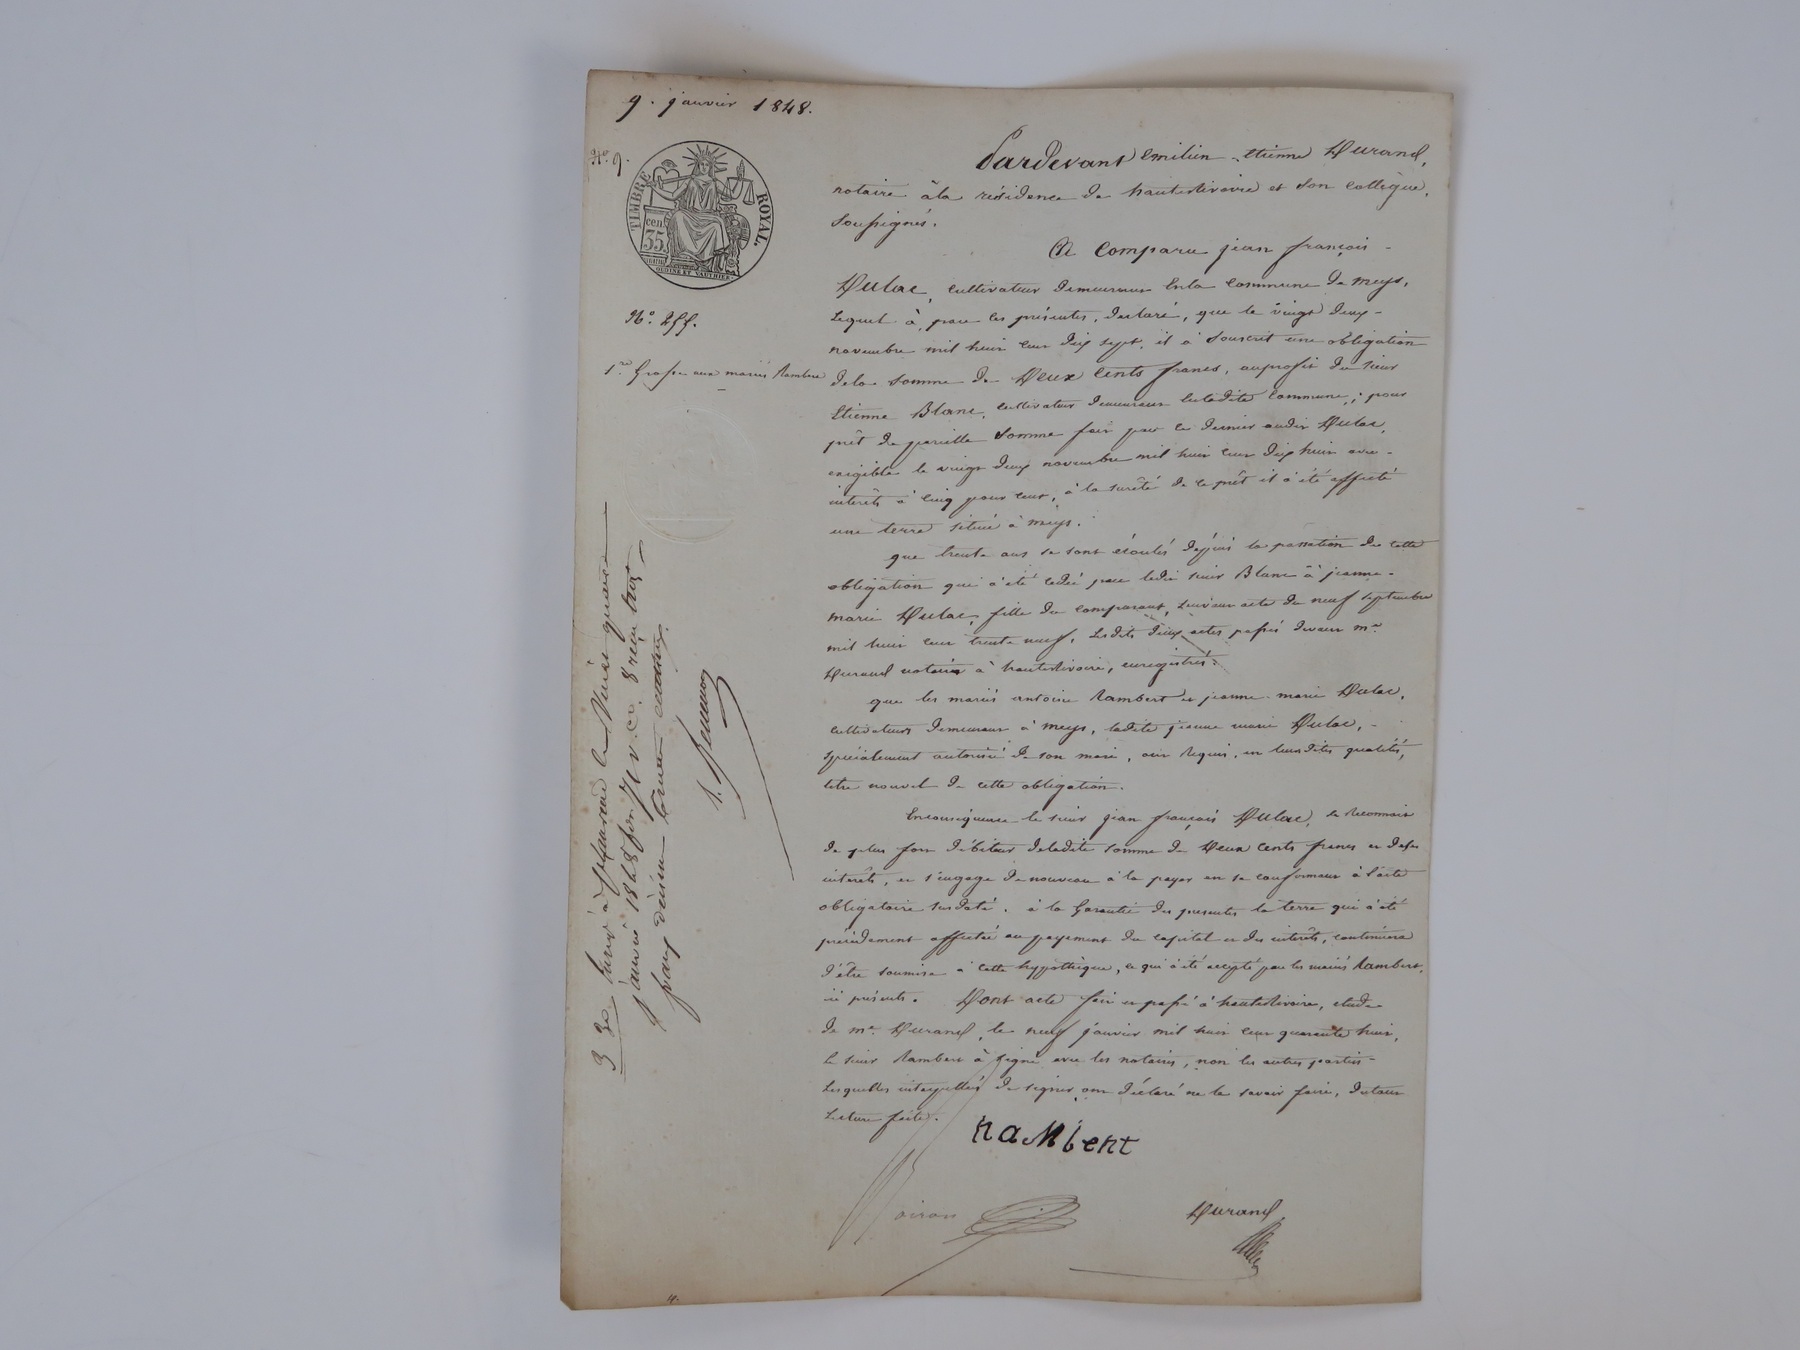 9. janvier 1848.
N° 9.
TIMBRE ROYAL.
cen.
35.
N° 255.
1re Grosse aux mariés Rambert
Pardevant emilien-etienne Durand,
notaire àla résidence de hauterivoire et son collègue,
soussignés.
A Comparu jean françois
Dulac, cultivateur demeurant enla commune de meys,
Lequel à, par les présentes, déclaré, que le vingt deux
novembre mil huit cent dix sept, il à souscrit une obligation
dela somme de Deux Cents francs, auprofit du sieur
Etienne Blanc, cultivateur demeurant enladite Commune, pour
prêt de pareille somme fait par ce dernier audit Dulac,
exigible le vingt deux novembre mil huit cent dix huit avec
intérêts à cinq pour cent, à la sureté de ce prêt il à été affecté
une terre située à meys.
que trente ans se sont écoulés depuis la passation de cette
obligation qui à été cédée par ledit sieur Blanc à jeanne
marie Dulac, fille du comparant, suivant acte du neuf septembre
mil huit cent trente neuf, Lesdits deux actes passés devant me
Durand notaire à hauterivoire, enregistrés.
que les mariés antoine Rambert et jeanne marie Dulac,
cultivateurs demeurant à meys, ladite jeanne marie Dulac,
spécialement autorisée de son mari, ont requis, en leursdites qualités,
titre nouvel de cette obligation.
Enconséquence le sieur jean françois Dulac, se Reconnait
de plus fort débiteur deladite somme de Deux Cents francs et deses
intérêts, et s'engage de nouveau à la payer en se conformant à l'acte
obligatoire susdaté. à la Garantie des presentes la terre qui à été
précédemment affectée au payement du capital et des intérêts, continuera
d'être soumise à cette hypothèque, ce qui à été accepté par les mariés Rambert,
ici présents. Dont acte fait et passé à hauterivoire, etude
de me Durand, le neuf janvier mil huit cent quarante huit,
le sieur Rambert à signé avec les notaires, non les autres parties
Lesquelles interpellées de signer ont déclaré ne le savoir faire, du tout
Lecture faite.
RaMbeRt
Moiron
Durand
3 30
janvier 1848 fo
franc décime trente